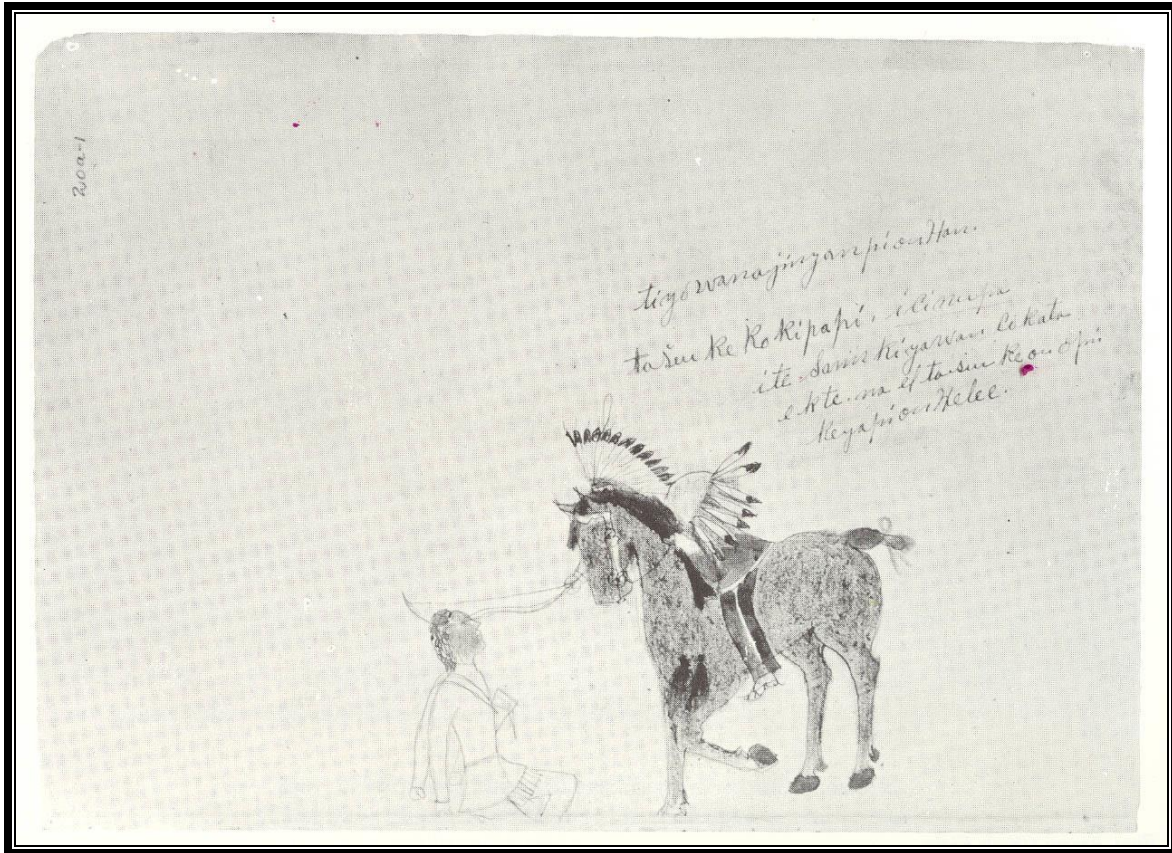 20a-1
tigowanajinyanpionHan.
tasunke Kokipapi. icinupa
ite Sanskigawan Cokata
ekte. na el tasunkeonopi
KeyapionHelee.